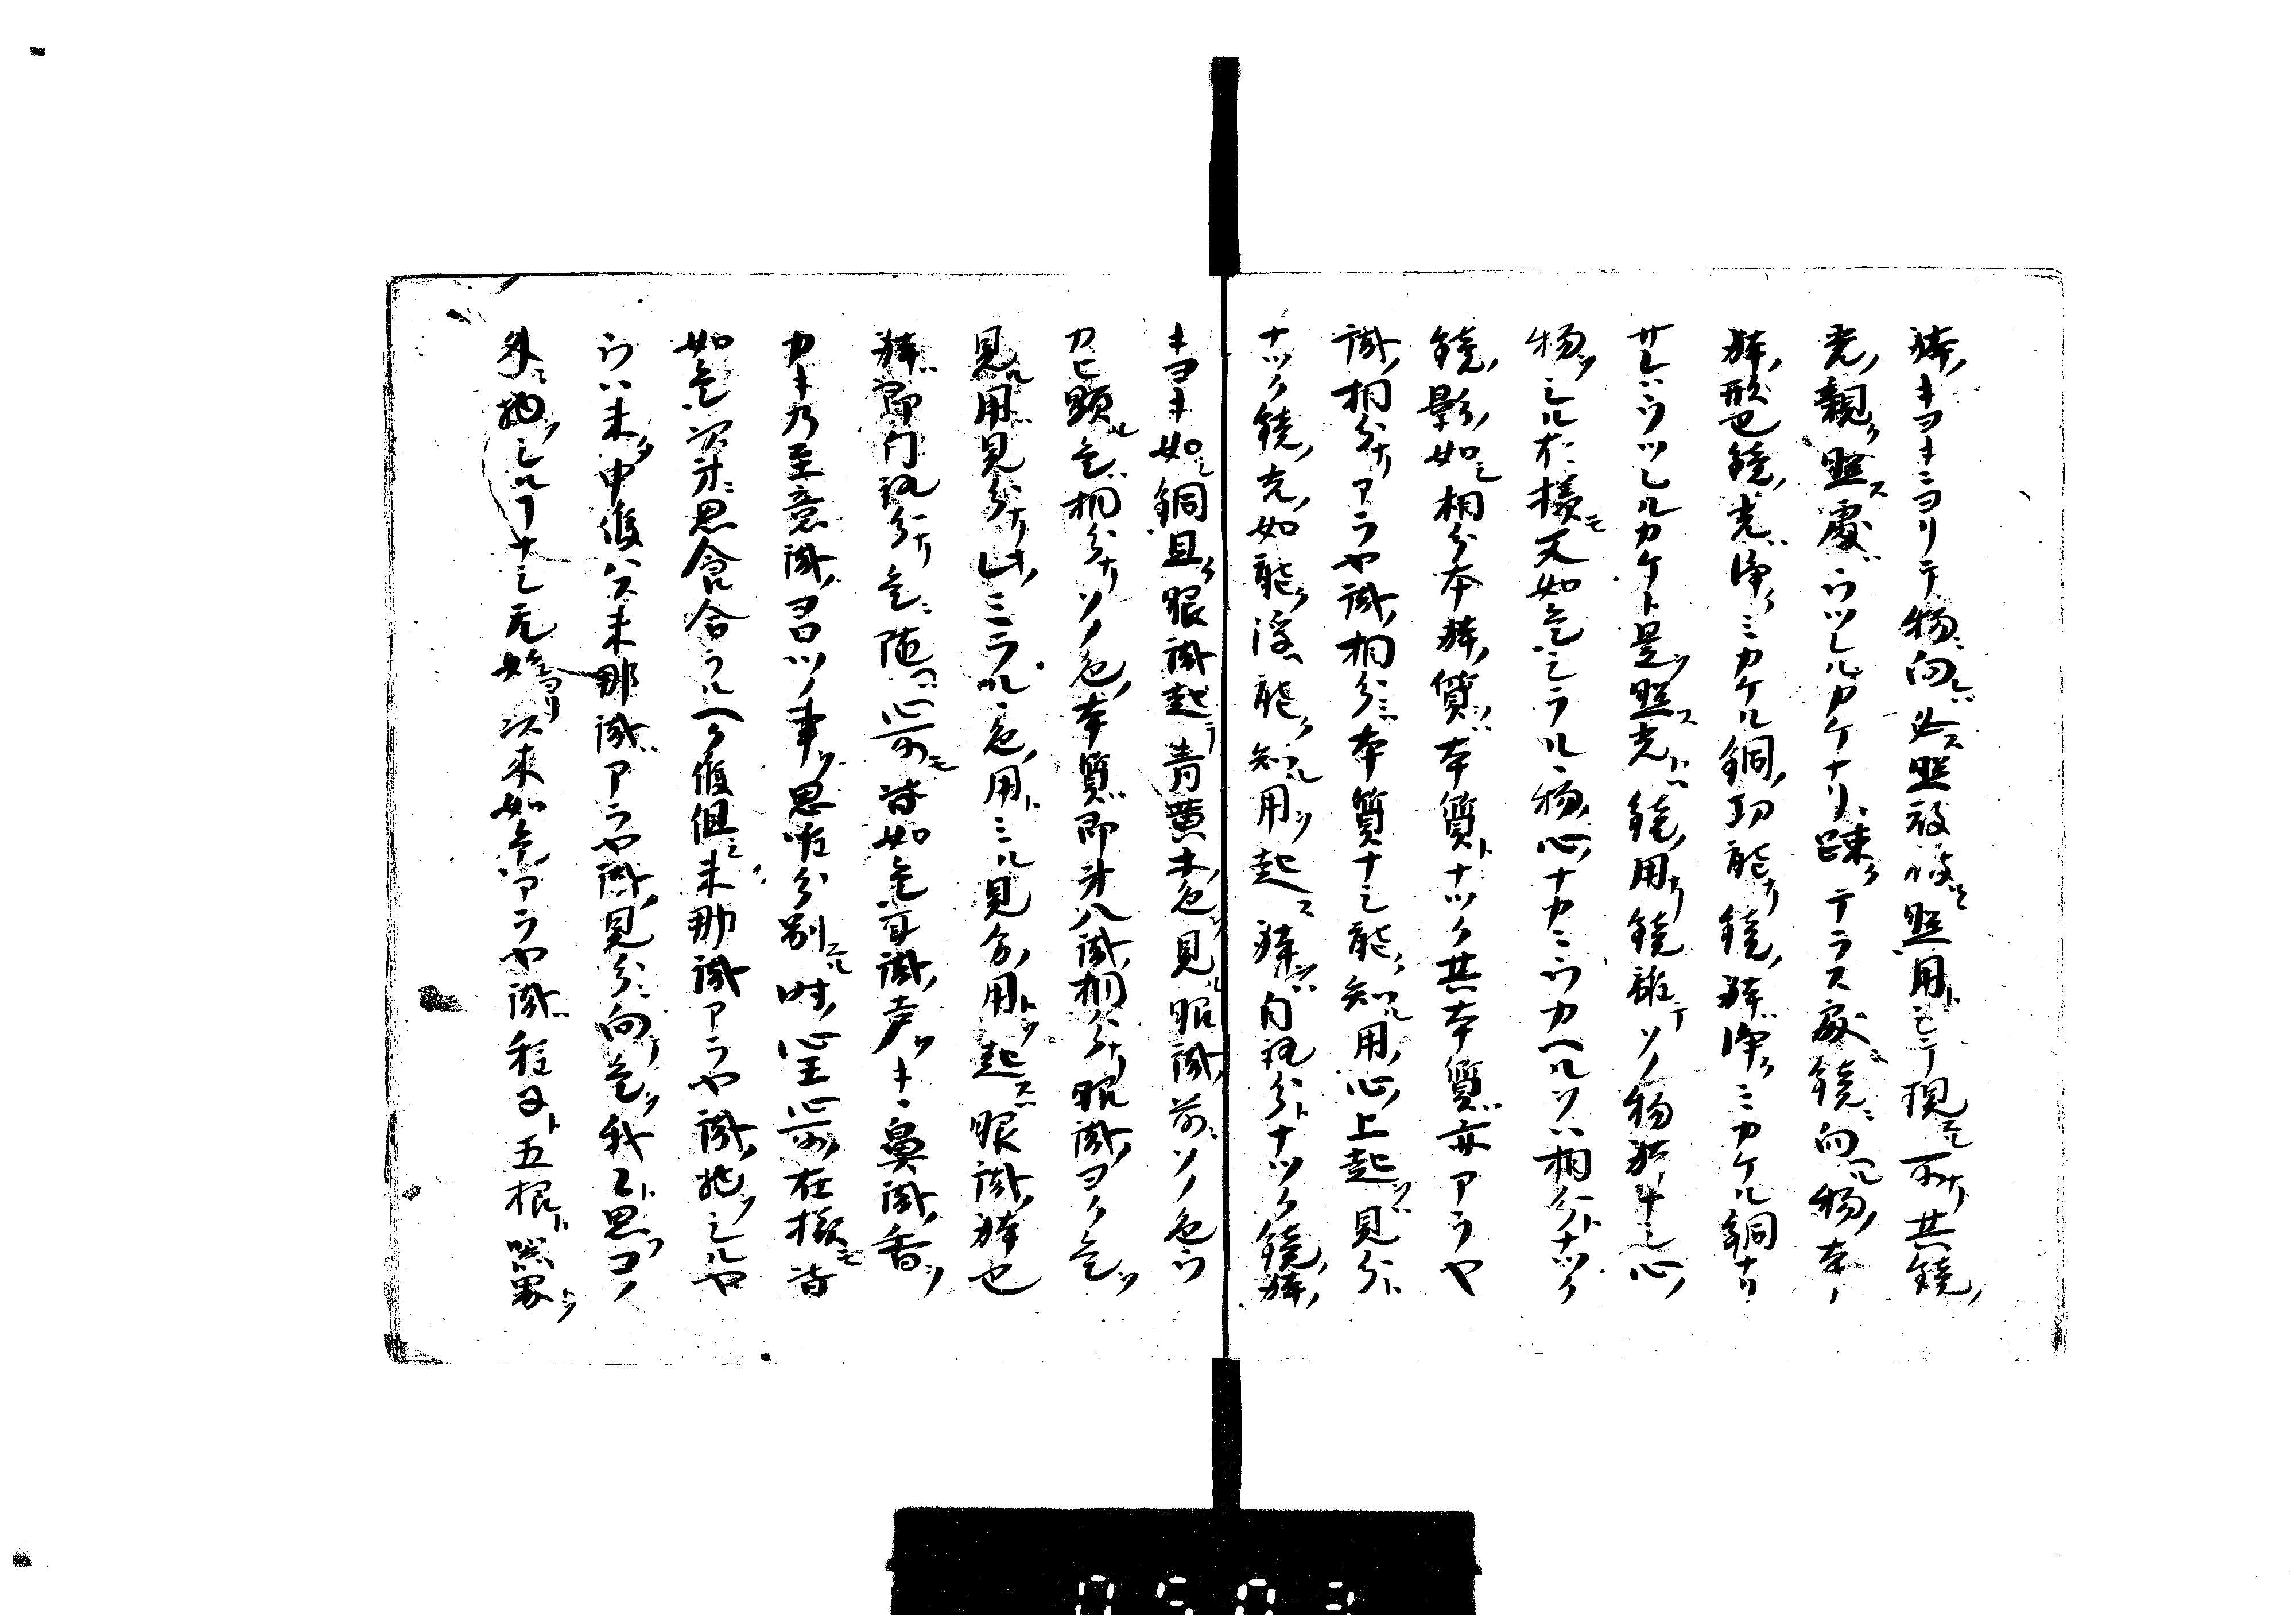 躰ノキヨキニヨリテ物ニ向レハ必ス照ス彼ヲ照ス用トシテ現スル所ナリ其鏡ノ
光ノ親ク照ス處ハウツレルカケナリ踈クテラス處ハ鏡ニ向ヘル物ノ本ノ
躰ノ形也鏡ノ光ハ浄クミカケル銅ノ功能ナリ鏡ノ躰ハ浄クミカケル銅ナリ
サレハウツレルカケト是ヲ照ス光トハ鏡ノ用ナリ鏡ヲ離テソノ物躰ナシ心ノ
物ヲシル在様モ又如是シラルヽ物ノ心ノナカニウカヘルヲハ相分トナツク
鏡ノ影ノ如シ相分ノ本躰ノ質ヲハ本質トナツク其本質ハ亦アラヤ
識ノ相分ナリアラヤ識ノ相分ニハ本質ナシ能ク知ル用ノ心ノ上ニ起ヲハ見分ト
ナツク鏡ノ光ノ如能ク浮ヘ能ク知ル用ヲ起ス躰ヲハ自証分トナツク鏡ノ躰ノ
キヨキ如シ銅且ク眼識起テ青黄ホノ色ヲ見ル眼識ノ前ニソノ色ウ
カヒ顕ル是ハ相分ナリソノ色ノ本質ハ即才八識ノ相分ナリ眼識ノヨク是ヲ
見ル用ハ見分ナリ此ノミラルヽ色ノ用トミル見分ノ用トヲ起スハ眼識ノ躰也
躰ハ即自証分ナリ是ニ随ヘル心所モ皆如是耳識ノ声ヲキヽ鼻識ノ香ヲ
カキ乃至意識ノヨロツノ事ヲ思惟分別スル時ノ心王心所ノ在様モ皆
如是次才ニ思食合ラルヘク候但シ末那識アラヤ識ノ物ヲシルヤ
ウハ未タ申候ハス末那識ハアラヤ識ノ見分ニ向テ是ヲ我ト思フココロノ
外ニ物ヲシル事ナシ无始ヨリ以来如是アラヤ識ハ種子ト五根ト器界トヲ